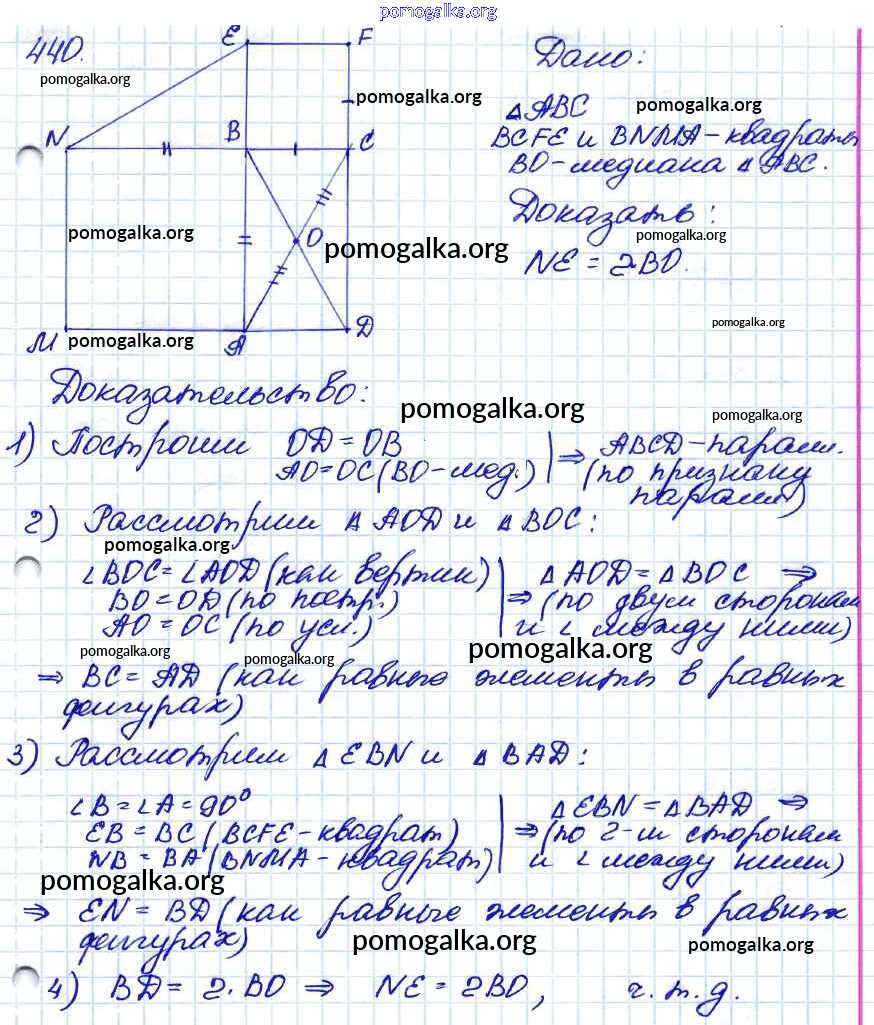 pomogalka.org
440.
pomogalka.org
E F
pomogalka.org
N B C
pomogalka.org
O
pomogalka.org
M A D
pomogalka.org
Дано:
△ABC
pomogalka.org
BCFE и BNMA - квадраты
BO - медиана △ABC.
Доказать:
pomogalka.org
NE = 2BO.
pomogalka.org
Доказательство:
pomogalka.org
pomogalka.org
1) Построим OD = OB
AO = OC (BO - мед.)
⇒ ABCD - парал.
(по признаку
парал.)
2) Рассмотрим △AOD и △BOC:
pomogalka.org
∠BOC = ∠AOD (как вертик)
BO = OD (по постр.)
AO = OC (по усл.)
△AOD = △BOC ⇒
⇒ (по двум сторонам
и ∠ между ними)
pomogalka.org
pomogalka.org
pomogalka.org
⇒ BC = AD (как равные элементы в равных
фигурах)
3) Рассмотрим △EBN и △BAD:
∠B = ∠A = 90°
EB = BC (BCFE - квадрат)
NB = BA (BNMA - квадрат)
△EBN = △BAD ⇒
⇒ (по 2-м сторонам
и ∠ между ними)
pomogalka.org
⇒ EN = BD (как равные элементы в равных
фигурах)
pomogalka.org
pomogalka.org
4) BD = 2·BO ⇒ NE = 2BO, ч.т.д.